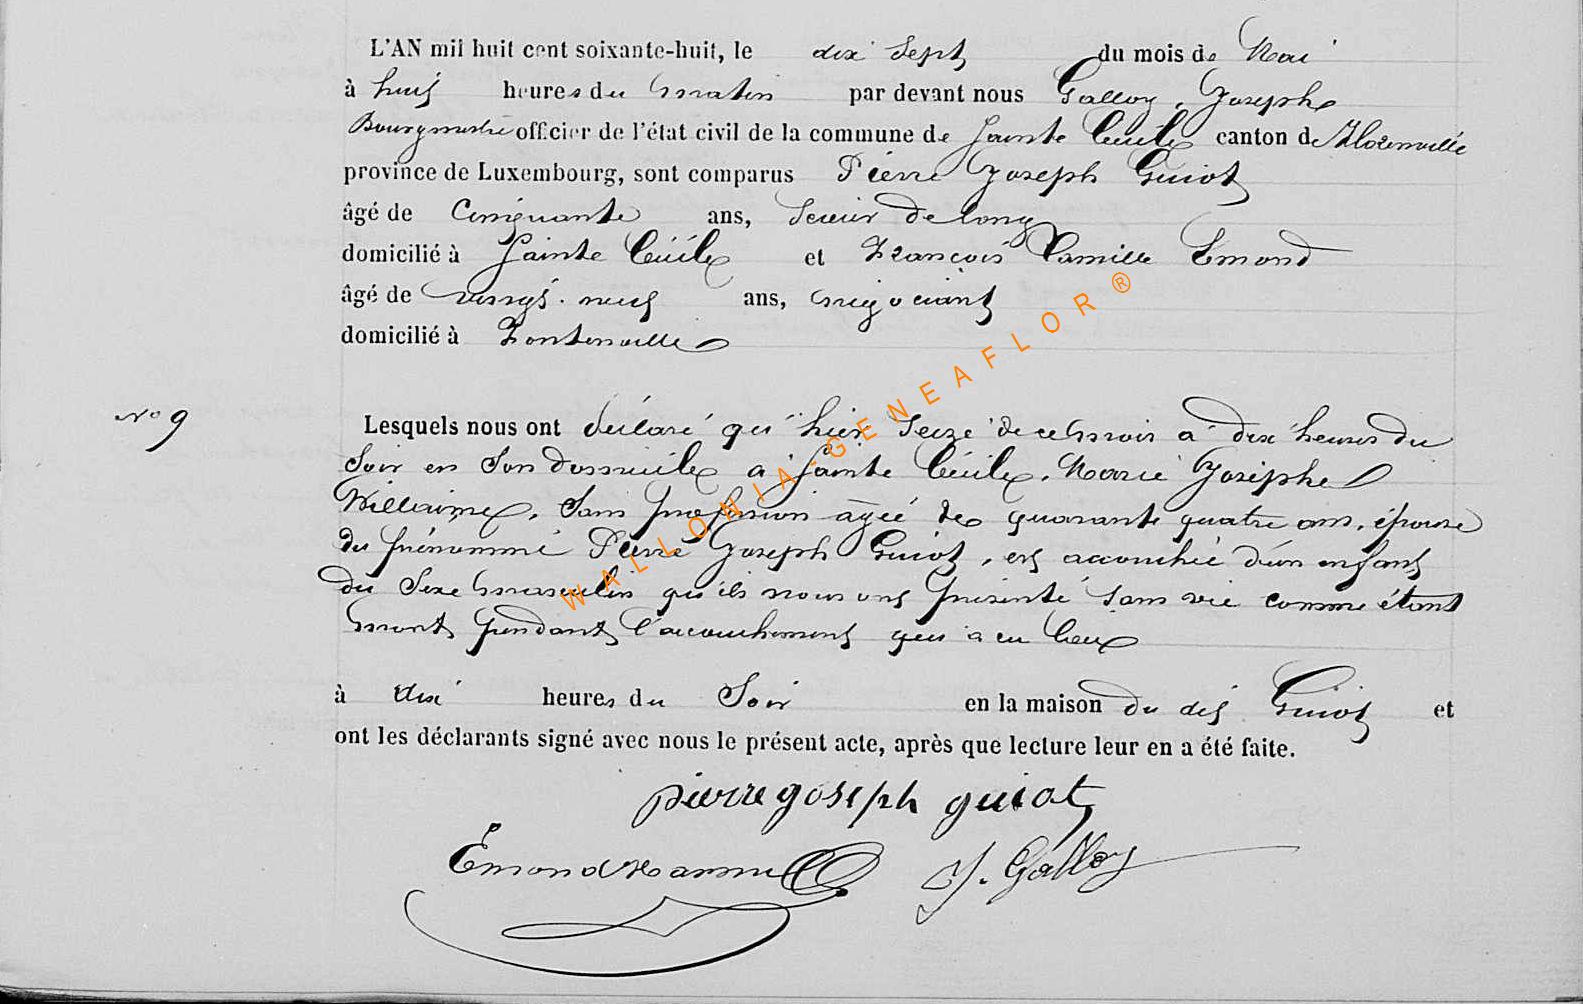 L'AN mil huit cent soixante-huit, le dix sept du mois de Mai
à huit heures du matin par devant nous Galloy, Joseph
Bourgmestre officier de l'état civil de la commune de Sainte Cécile canton de Florenville
province de Luxembourg, sont comparus Pierre Joseph Guiot
âgé de Cinquante ans, Scieur de long
domicilié à Sainte Cécile et François Camille Emond
âgé de vingt-neuf ans, négociant
domicilié à Fontenoille
N° 9
Lesquels nous ont déclaré qu'hier Seize de ce mois à dix heures du
Soir en Son domicile à Sainte Cécile, Marie Josèphe
Willaime, Sans profession âgée de quarante quatre ans, épouse
du prénommé Pierre Joseph Guiot, est accouchée d'un enfant
du Sexe masculin qu'ils nous ont présenté Sans vie comme étant
mort pendant l'accouchement qui a eu lieu
à dix heures du Soir en la maison du dit Guiot et
ont les déclarants signé avec nous le présent acte, après que lecture leur en a été faite.
pierre joseph guiot
Emond Camille J. Galloy
WALLONIA-GENEAFLOR®